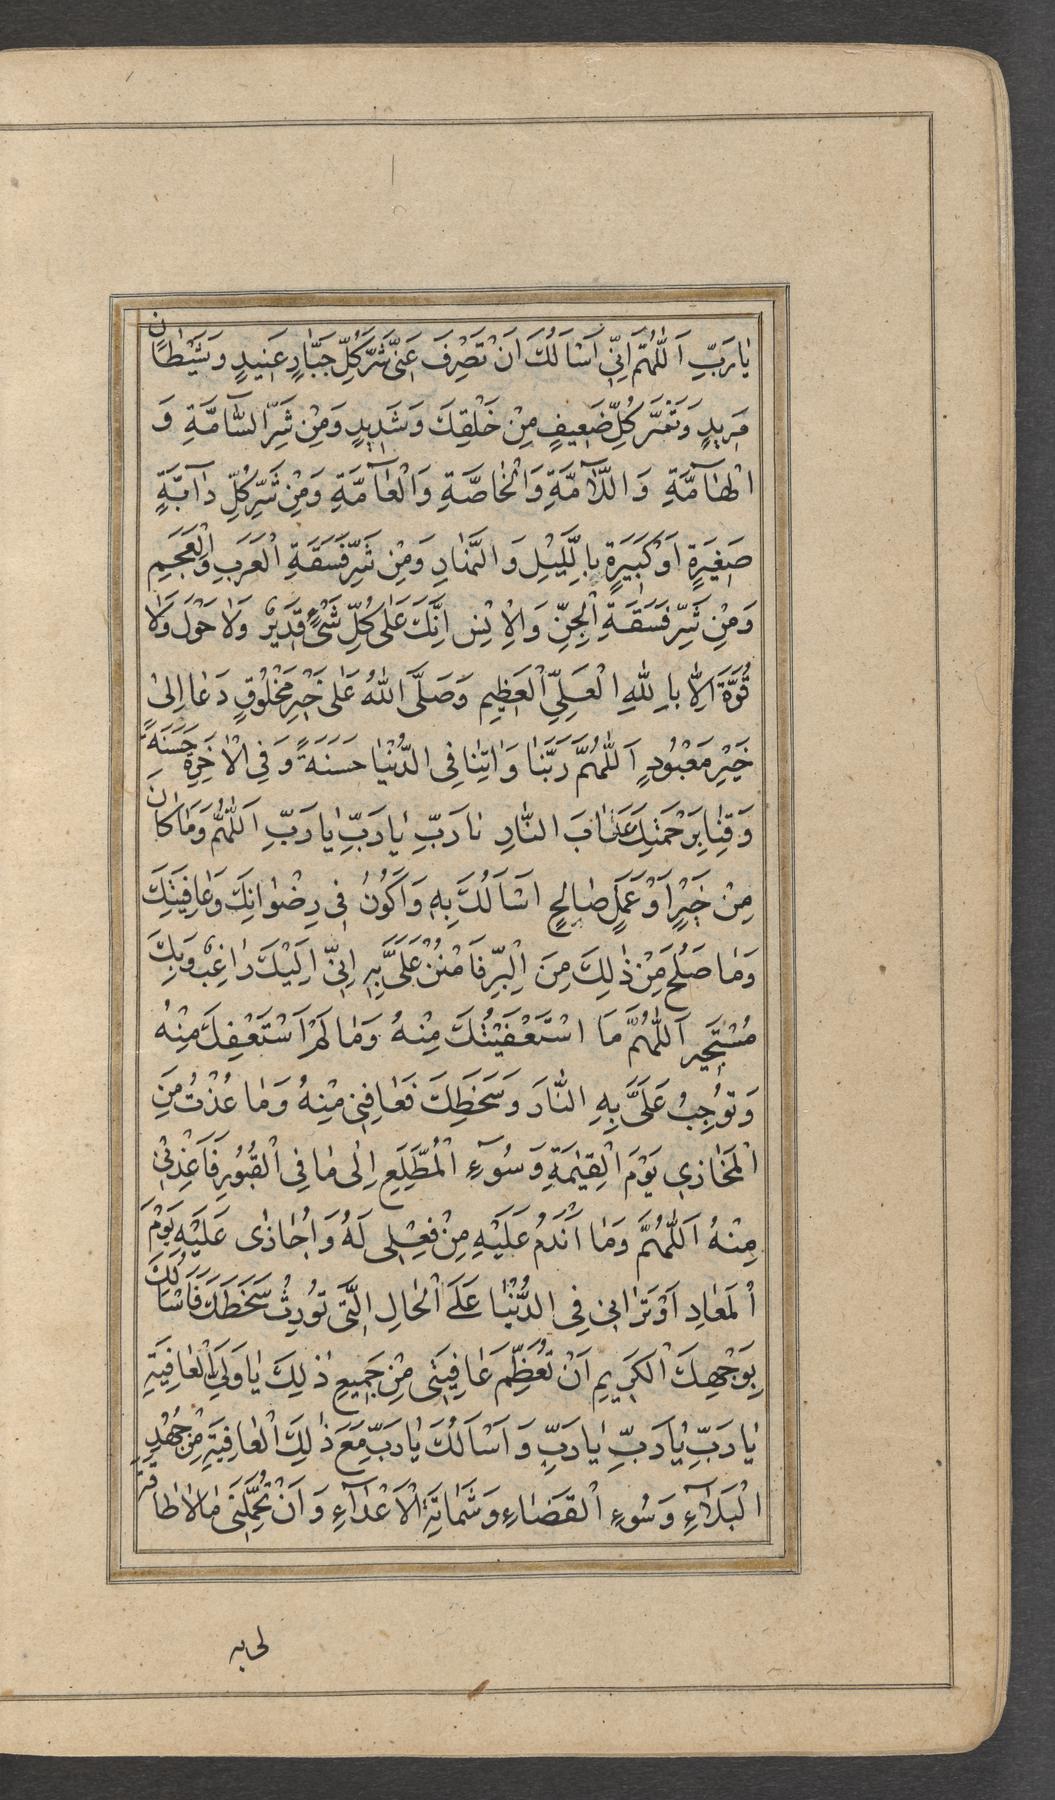 يَارَبِّ اَللّٰهُمَّ اِنّى اَسْاَلُكَ اَنْ تَصْرِفَ عَنّى شَرَّ كُلِّ جَبَّارٍ عَنيدٍ وَشَيْطَانٍ
مَريدٍ وَشَرَّ كُلِّ ضَعيفٍ مِنْ خَلْقِكَ وَشَديدٍ وَمِنْ شَرِّ السَّامَّةِ وَ
الْهٰآمَّةِ وَاللَّآمَّةِ وَالْخاصَّةِ وَالْعٰآمَّةِ وَمِنْ شَرِّ كُلِّ دٰآبَّةٍ
صَغيرَةٍ اَوْ كَبيرَةٍ بِاللَّيْلِ وَالنَّهٰارِ وَمِنْ شَرِّ فَسَقَةِ الْعَرَبِ وَالْعَجَمِ
وَمِنْ شَرِّ فَسَقَةِ الْجِنِّ وَالْاِنْسِ اِنَّكَ عَلى كُلِّ شَىْءٍ قَديرٌ وَلٰا حَوْلَ وَلٰا
قُوَّةَ اِلَّا بِاللّٰهِ الْعَلِىِّ الْعَظيمِ وَصَلَّى اللّٰهُ عَلى خَيْرِ مَخْلُوقٍ دَعٰا اِلىٰ
خَيْرِ مَعْبُودٍ اَللّٰهُمَّ رَبَّنٰا وَاٰتِنٰا فِى الدُّنْيٰا حَسَنَةً وَفِى الْاٰخِرَةِ حَسَنَةً
وَقِنٰا بِرَحْمَتِكَ عَذٰابَ النّٰارِ يٰارَبِّ يٰارَبِّ يٰارَبِّ اَللّٰهُمَّ وَمٰاكٰانَ
مِنْ خَيْرٍ اَوْ عَمَلٍ صٰالِحٍ اَسْاَلُكَ بِهِ وَاَكُونُ فى رِضْوٰانِكَ وَعٰافِيَتِكَ
وَمٰا صَلُحَ مِنْ ذٰلِكَ مِنَ الْبِرِّ فَامْنُنْ عَلَىَّ بِهِ اِنّى اِلَيْكَ رٰاغِبٌ وَبِكَ
مُسْتَجير اَللّٰهُمَّ مَا اسْتَعْفَيْتُكَ مِنْهُ وَمٰا لَمْ اَسْتَعْفِكَ مِنْهُ
وَتُوجِبُ عَلَىَّ بِهِ النّٰارَ وَسَخَطَكَ فَعٰافِنى مِنْهُ وَمٰا عُذْتُ مِنَ
الْمَخٰازى يَوْمَ الْقِيٰمَةِ وَسُوٓءِ الْمُطَّلَعِ اِلىٰ مٰا فِى الْقُبُورِ فَاَعِذْنى
مِنْهُ اَللّٰهُمَّ وَمٰا اَنْدَمُ عَلَيْهِ مِنْ فِعْلى لَهُ وَاُجٰازٰى عَلَيْهِ يَوْمَ
الْمَعٰادِ اَوْ تَرٰانى فِى الدُّنْيٰا عَلَى الْحٰالِ الَّتى تُورِثُ سَخَطَكَ فَاَسْاَلُكَ
بِوَجْهِكَ الْكَريمِ اَنْ تُعَظِّمَ عٰافِيَتى مِنْ جَميعِ ذٰلِكَ يٰا وَلِىَّ الْعٰافِيَةِ
يٰارَبِّ يٰارَبِّ يٰارَبِّ وَاَسْاَلُكَ يٰارَبِّ مَعَ ذٰلِكَ الْعٰافِيَةِ مِنْ جُهْدِ
الْبَلٰآءِ وَسُوٓءِ الْقَضٰاءِ وَشَمٰاتَةِ الْاَعْدٰآءِ وَاَنْ تُحَمِّلَنى مٰالاٰ طٰاقَةَ
لى به